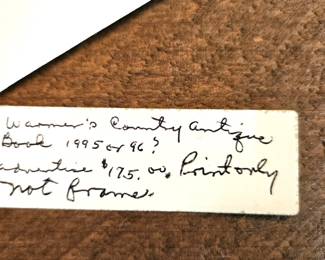 Warmer's Country Antique
Book 1995 or 96?
advertise $175.00. Print only
not frame.